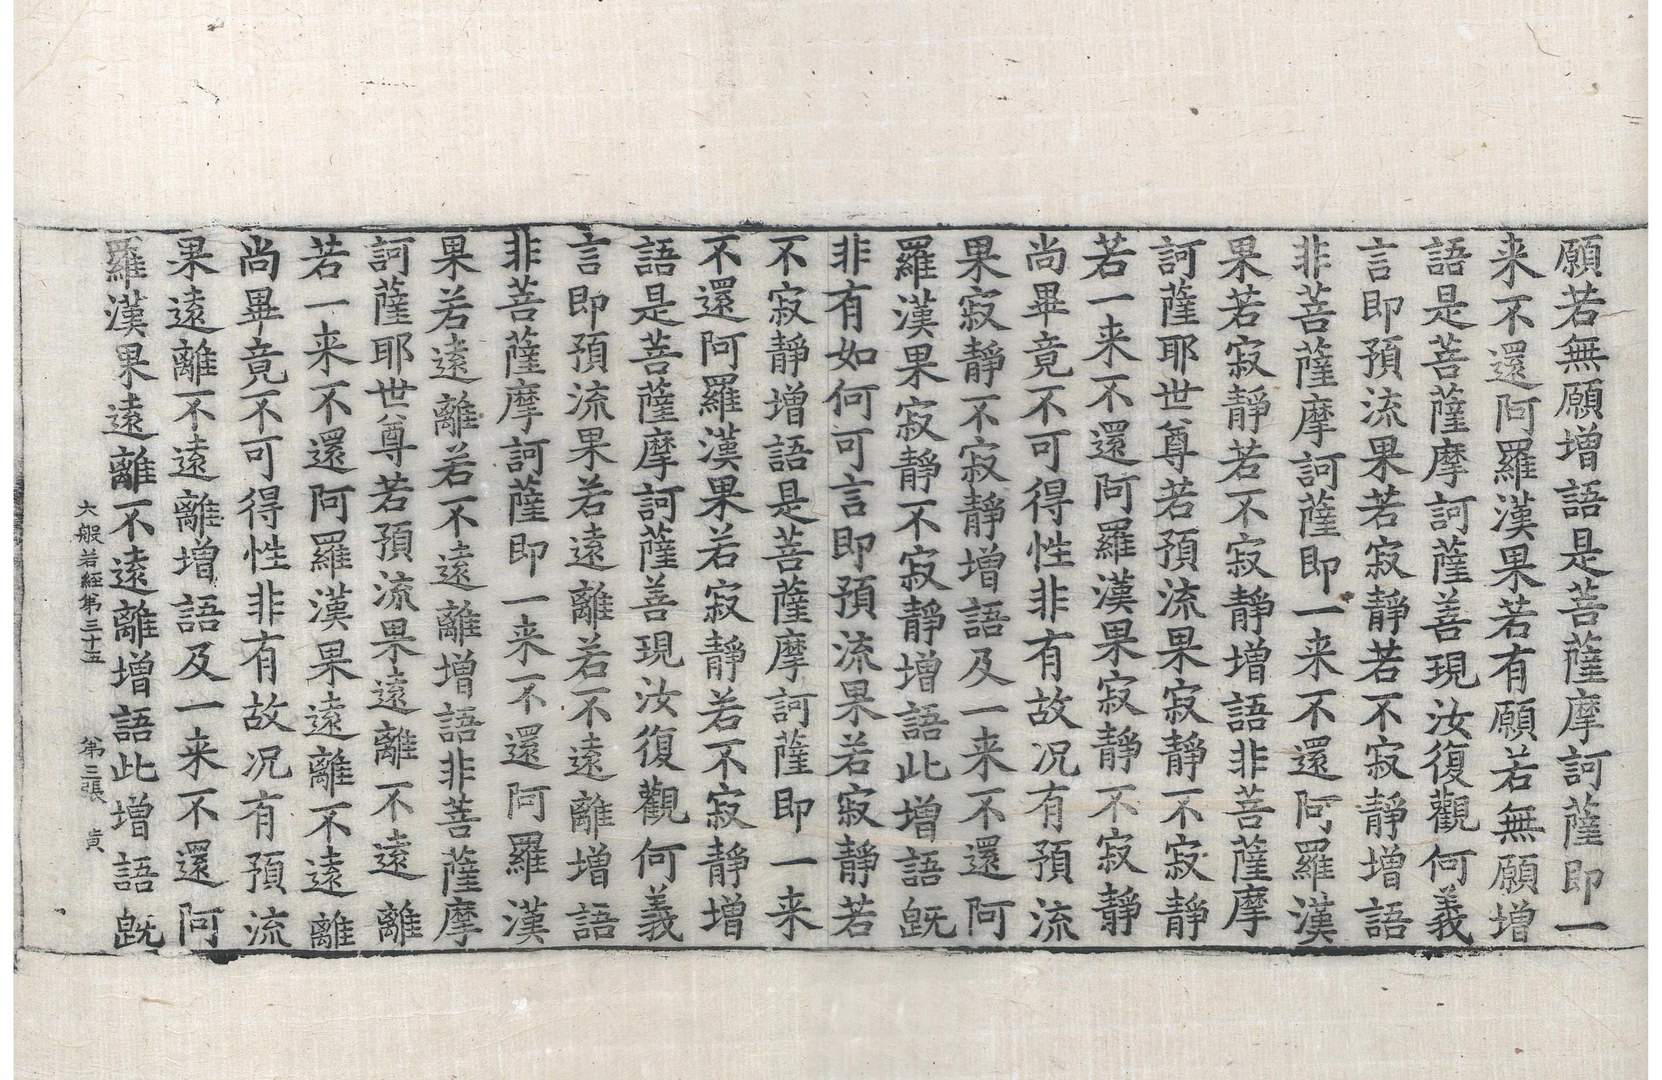 願若無願增語是菩薩摩訶薩即一
来不還阿羅漢果若有願若無願增
語是菩薩摩訶薩善現汝復觀何義
言即預流果若寂靜若不寂靜增語
非菩薩摩訶薩即一来不還阿羅漢
果若寂靜若不寂靜增語非菩薩摩
訶薩耶世尊若預流果寂靜不寂靜
若一来不還阿羅漢果寂靜不寂靜
尚畢竟不可得性非有故况有預流
果寂靜不寂靜增語及一来不還阿
羅漢果寂靜不寂靜增語此增語旣
非有如何可言即預流果若寂靜若
不寂靜增語是菩薩摩訶薩即一来
不還阿羅漢果若寂靜若不寂靜增
語是菩薩摩訶薩善現汝復觀何義
言即預流果若遠離若不遠離增語
非菩薩摩訶薩即一来不還阿羅漢
果若遠離若不遠離增語非菩薩摩
訶薩耶世尊若預流果遠離不遠離
若一来不還阿羅漢果遠離不遠離
尚畢竟不可得性非有故况有預流
果遠離不遠離增語及一来不還阿
羅漢果遠離不遠離增語此增語旣
大般若經第三十五 第三張 黄